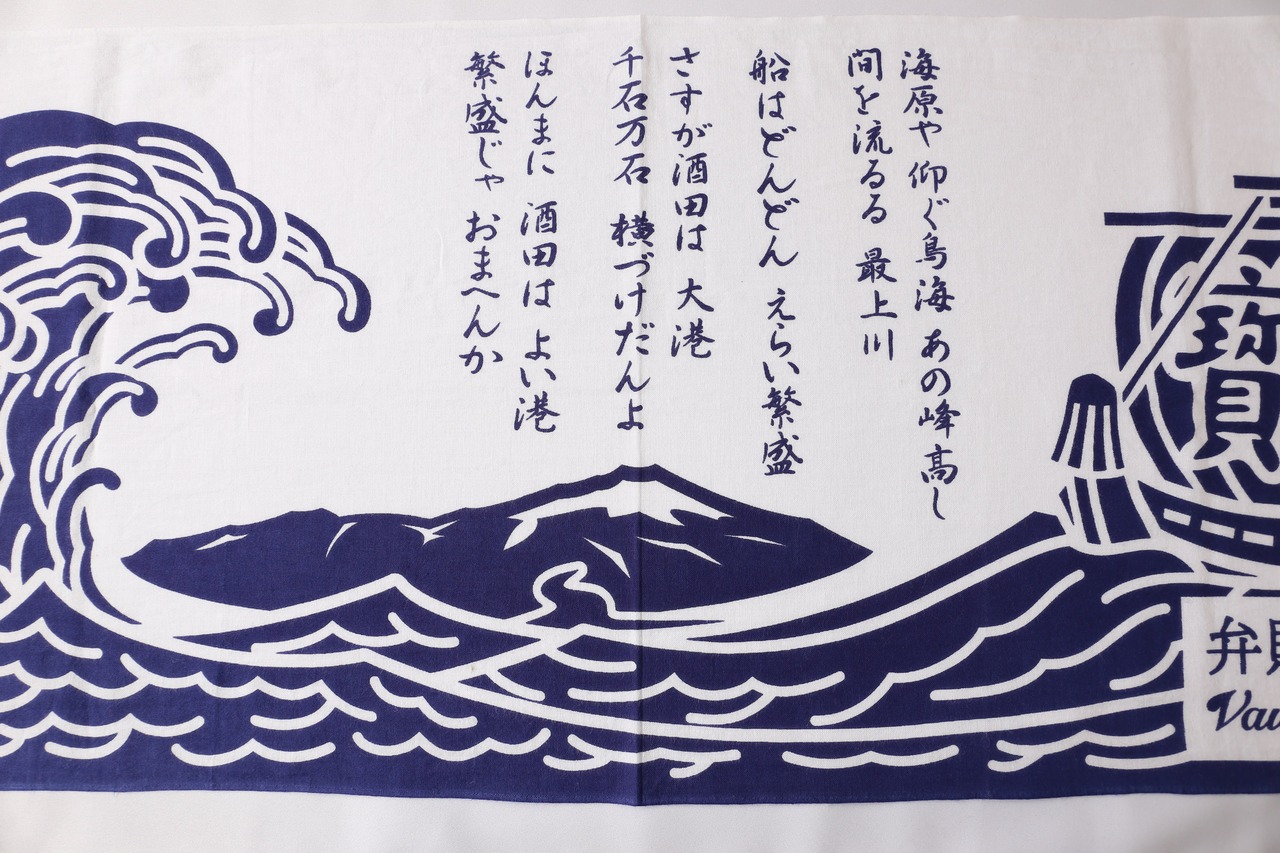 海原や 仰ぐ鳥海 あの峰高し
間を流るる 最上川
船はどんどん えらい繁盛
さすが酒田は 大港
千石万石 横づけだんよ
ほんまに 酒田は よい港
繁盛じゃ おまへんか
弁